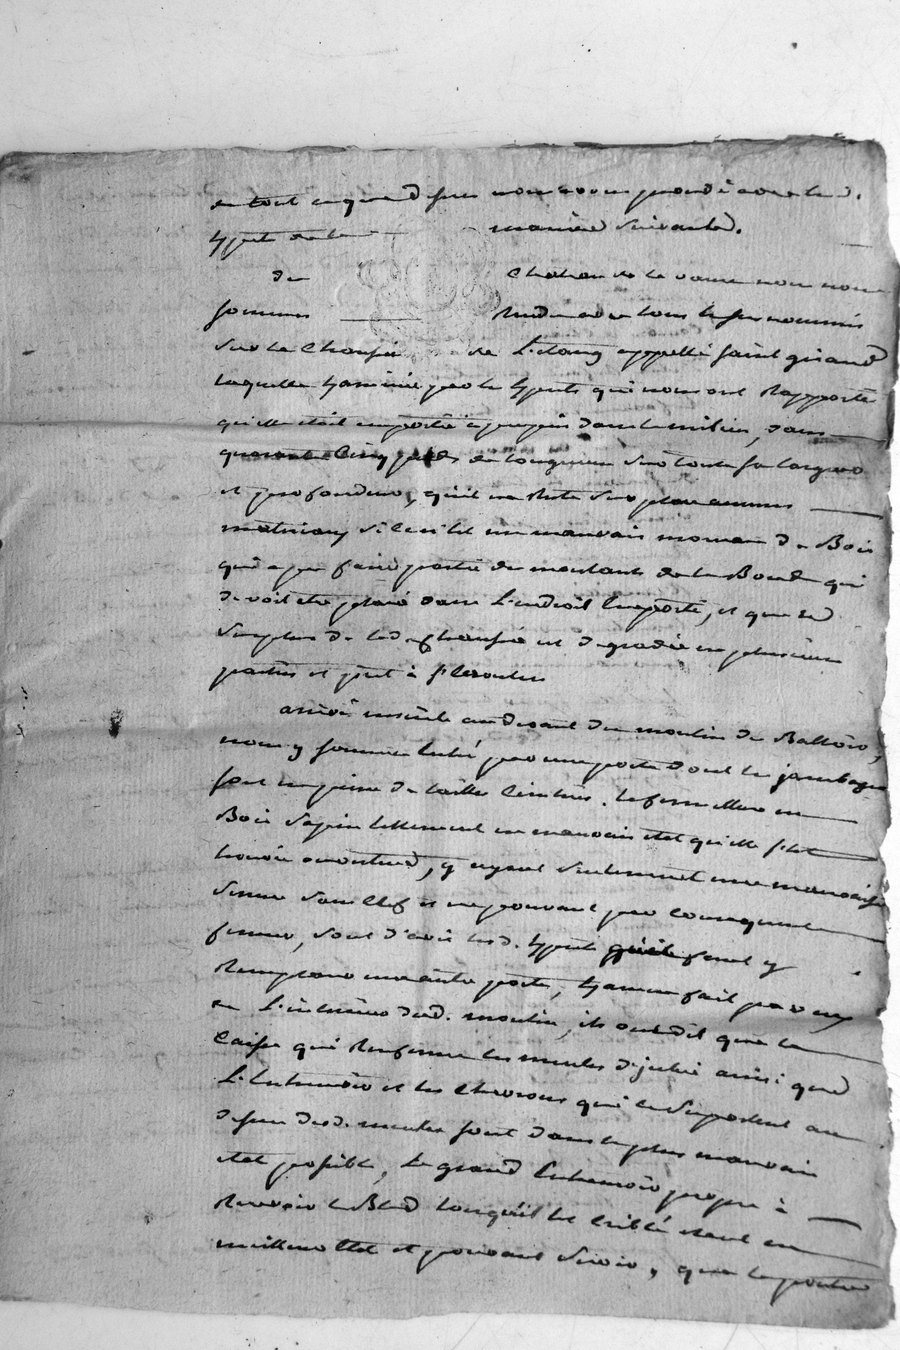 en tout ce que dessus nous avons procédé avec lesd.
Experts de la manière suivante.
De Chateau de la nous nous
sommes Rendu avec tous les sus nommés
sur la Chaussée de L'étang appellé saint giraud
laquelle Examinée par les Experts qui nous ont Rapporté
qu'elle étoit emportée a peu près dans le milieu, dans
quarante Cinq pieds de longueur sur toute sa largeur
et profondeur, qu'il ne Reste sur place aucuns
matériaux si ce n'est un mauvais morceau de Bois
qui a pu faire partie des montants de la Bonde qui
devoit etre placé dans L'endroit Emporté, et que le
surplus de lad. chaussée est degradée en plusieurs
parties et pret à s'ecrouler
arrivé ensuite au devant du moulin de
nous y sommes Entré par une porte dont les jambages
sont en pierre de taille Cintrée. la fermeture en
Bois sapin tellement en mauvais etat qu'elle s'est
trouvée ouverte, y ayant seulement une mauvaise
serrure sans Clef et ne pouvant par consequent
fermer, sont d'avis lesd. Experts qu'il faut y
Remplacer une autre porte, Examen fait par eux
en L'intérieur dud. moulin, ils ont dit que la
Caisse qui Renferme les meules d' ainsi que
L'Entremoir et les Chevrons qui le Supportent au
dessus desd. meules sont dans le plus mauvais
état possible, Le grand Entremoir propre à
Recevoir le Bled lorsqu'il est criblé étant en
meilleur état et pouvant servir, que la porte